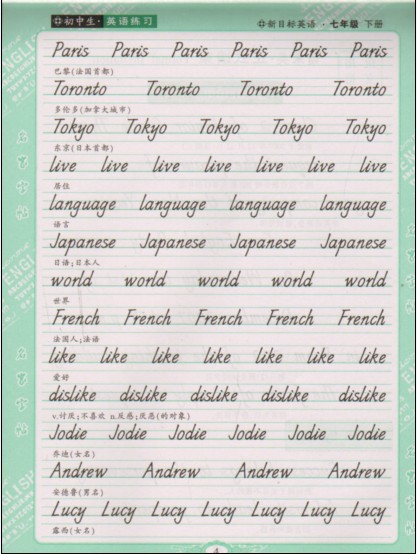 初中生·英语练习
新目标英语·七年级 下册
Paris Paris Paris Paris Paris Paris
巴黎(法国首都)
Toronto Toronto Toronto Toronto
多伦多(加拿大城市)
Tokyo Tokyo Tokyo Tokyo Tokyo
东京(日本首都)
live live live live live live live
居住
language language language language
语言
Japanese Japanese Japanese Japanese
日语;日本人
world world world world world
世界
French French French French French
法国人;法语
like like like like like like like
爱好
dislike dislike dislike dislike dislike
v.讨厌;不喜欢 n.反感;厌恶(的对象)
Jodie Jodie Jodie Jodie Jodie Jodie
乔迪(女名)
Andrew Andrew Andrew Andrew
安德鲁(男名)
Lucy Lucy Lucy Lucy Lucy Lucy Lucy
露西(女名)
4